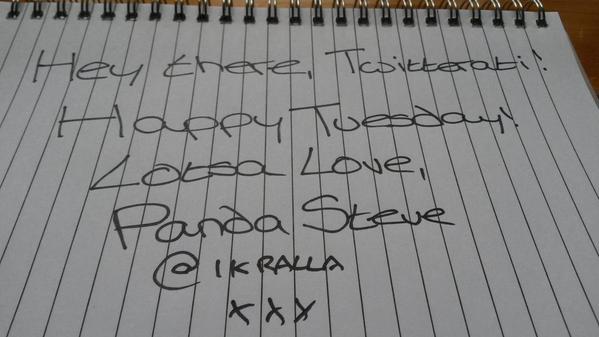 Hey there, Twitterati!
Happy Tuesday!
Lotsa Love,
Panda Steve
@IKRALLA
xxx